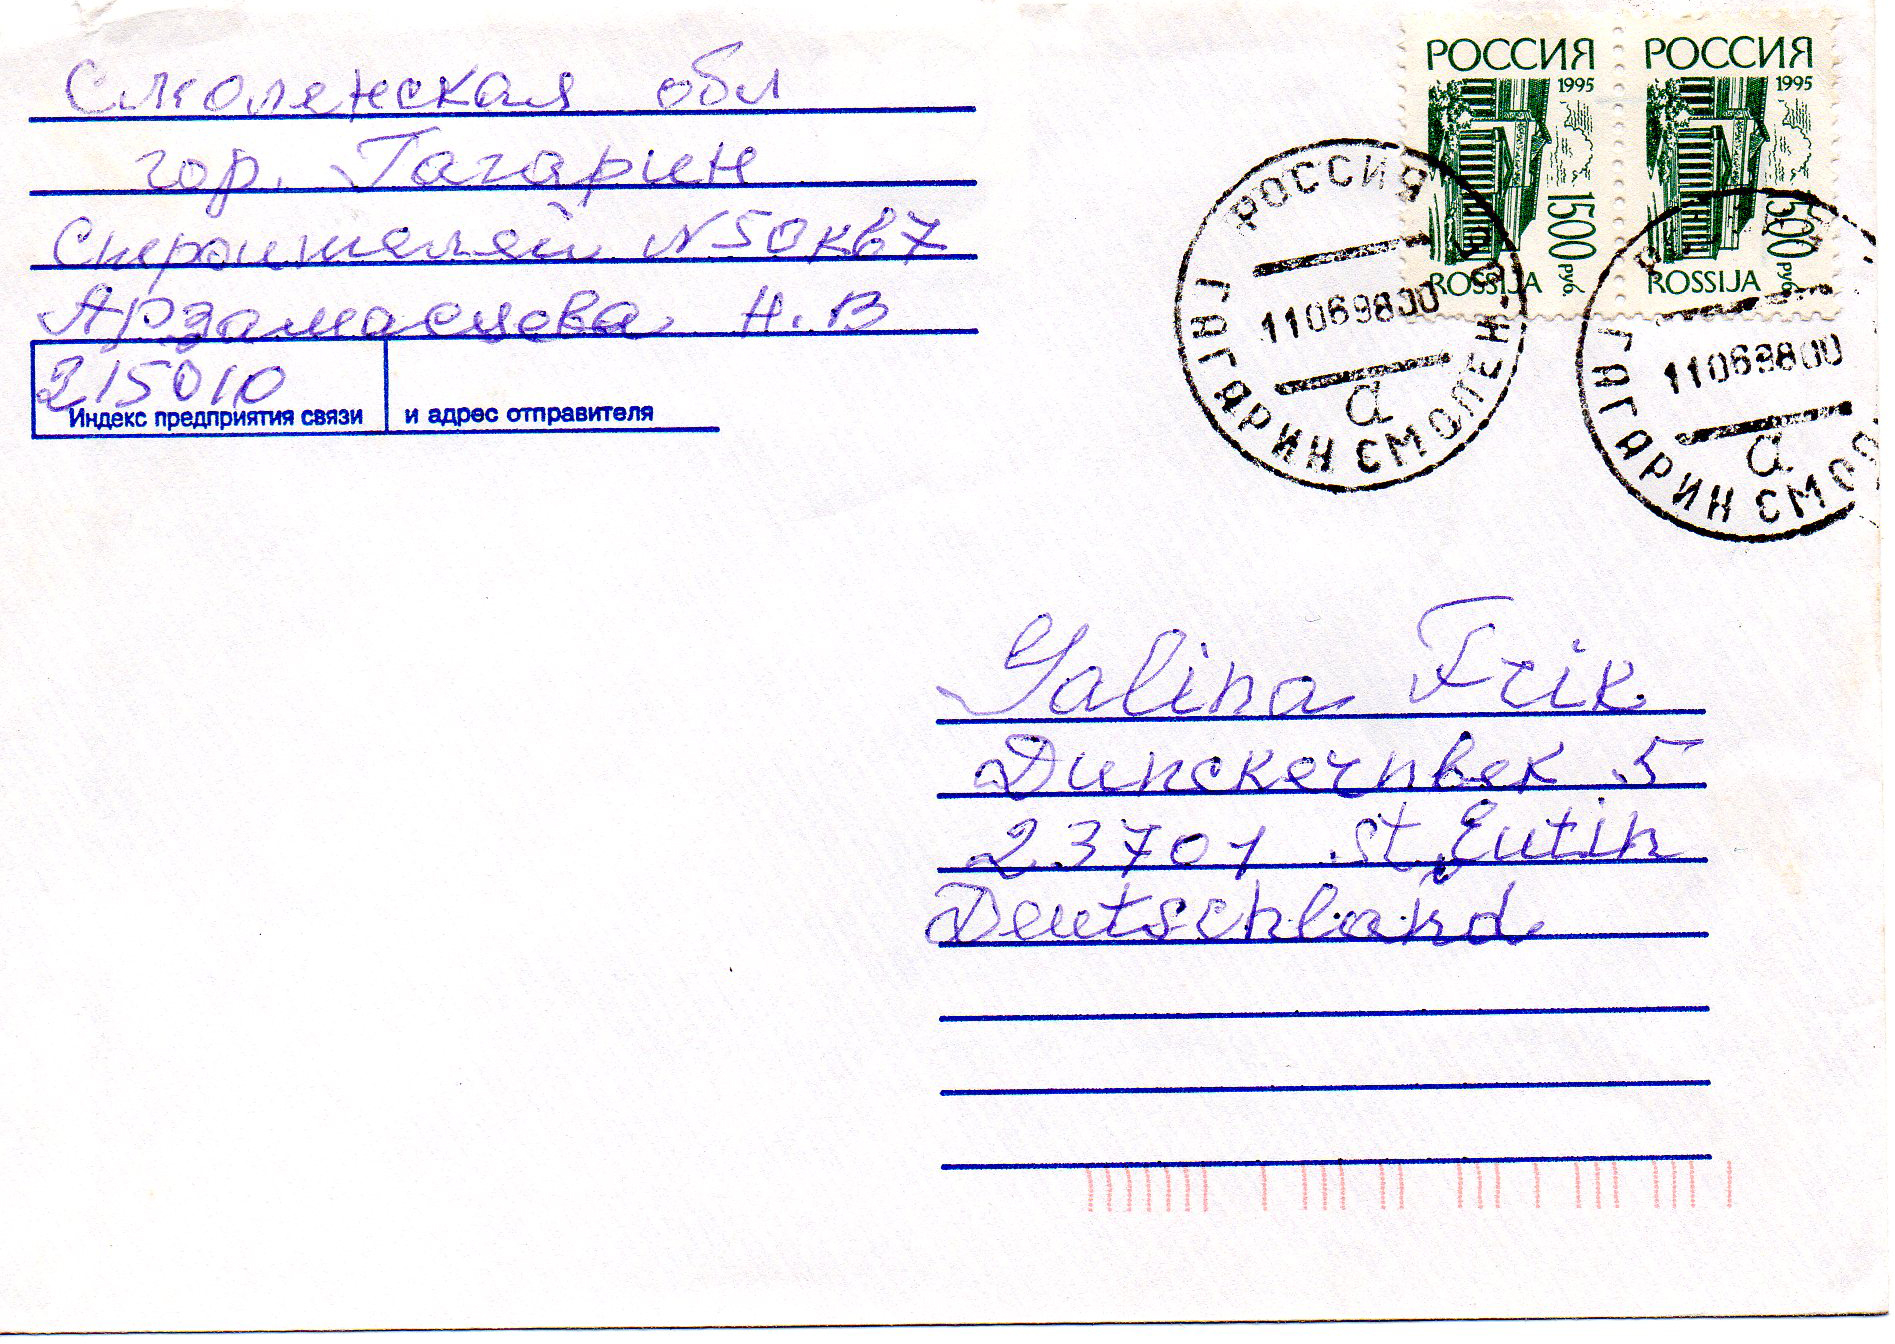 Смоленская обл
гор. Гагарин
Строителей N50кв7
Арзамасцева Н.В
215010
Индекс предприятия связи и адрес отправителя
РОССИЯ
1995
1500 руб.
ROSSIJA
РОССИЯ
1995
1500 руб.
ROSSIJA
РОССИЯ
11069800
а
ГАГАРИН СМОЛЕН
11069800
а
ГАГАРИН СМОЛ
Galina Frik
Dunckernbek 5
23701 st. Eutin
Deutschland